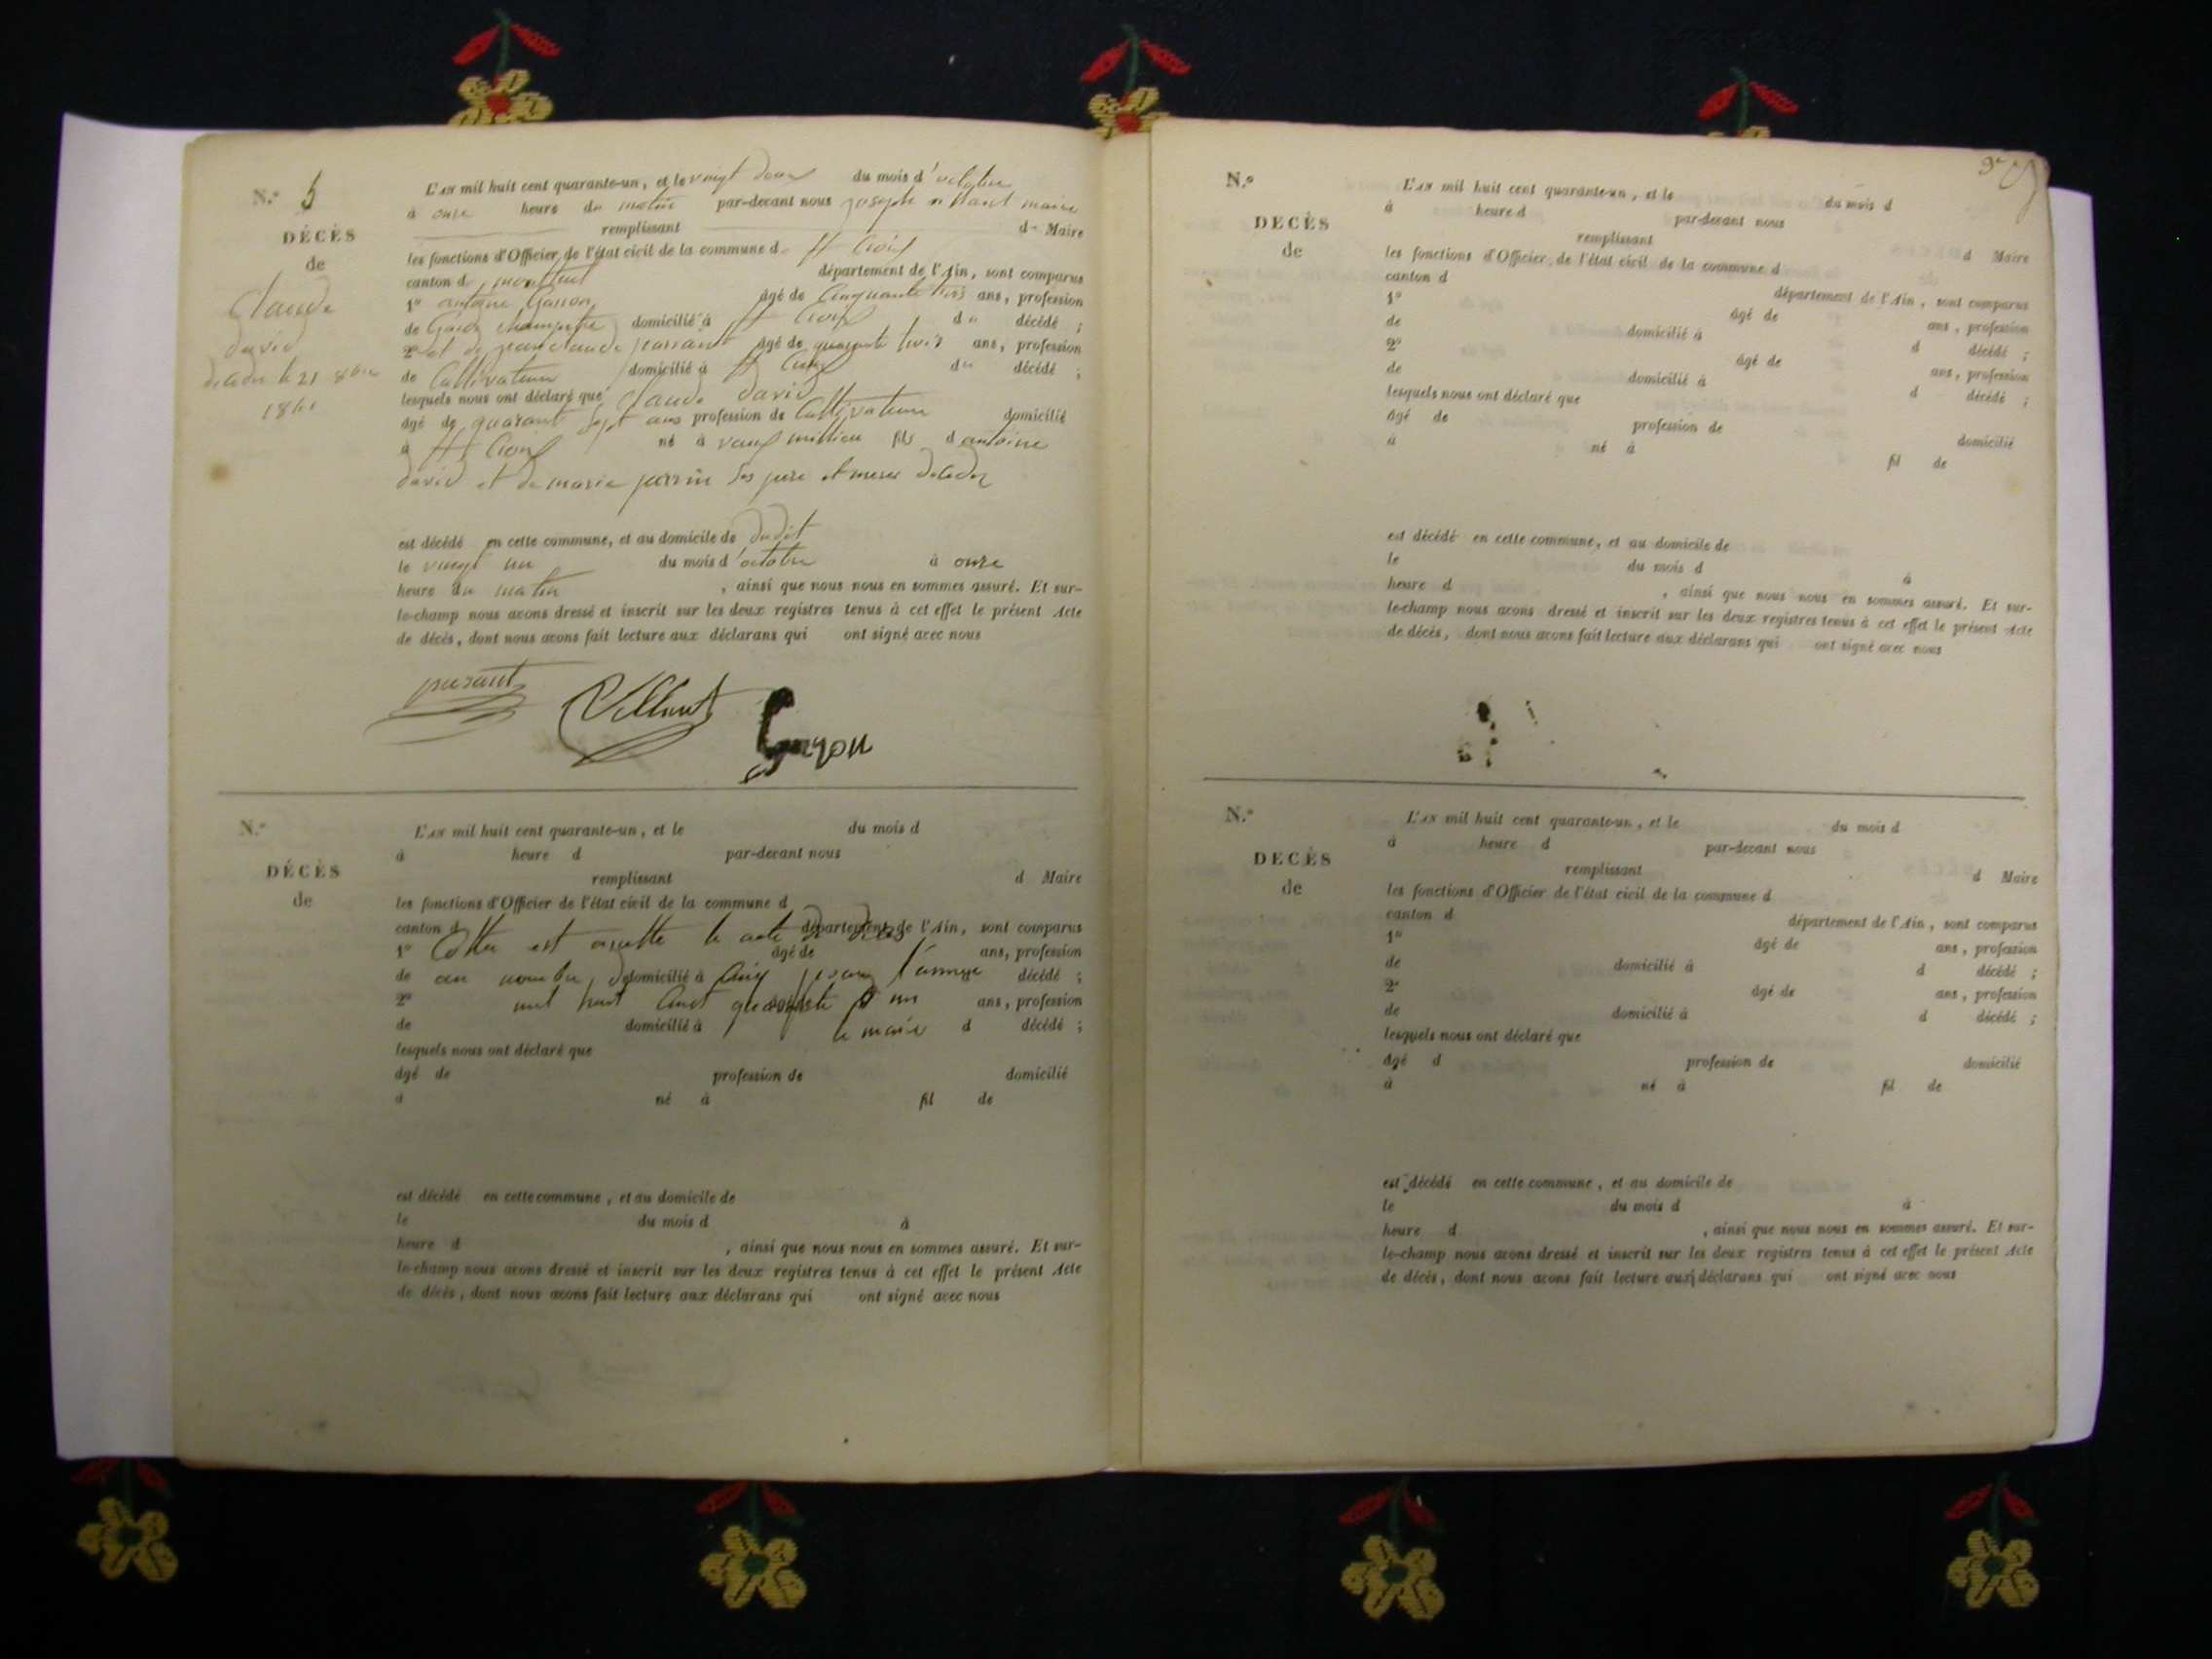 N.o 5
DÉCÈS
de
Claude
david
décédé le 21 8bre
1841
L'AN mil huit cent quarante-un, et le vingt deux du mois d'octobre
à onze heure du matin par-devant nous joseph villant maire
remplissant d Maire
les fonctions d'Officier de l'état civil de la commune d Ste Croix
canton de montluel département de l'Ain, sont comparus
1o antoine Gayon âgé de Cinquante trois ans, profession
de Garde champetre domicilié à Ste Croix du décédé ;
2o et de jean claude âgé de quarante trois ans, profession
de Cultivateur domicilié à Ste Croix du décédé ;
lesquels nous ont déclaré que Claude david
âgé de quarante sept ans profession de Cultivateur domicilié
à Ste Croix né à fils d antoine
david et de marie perrin ses père et mère
est décédé en cette commune, et au domicile de dudit
le vingt un du mois d'octobre à onze
heure du matin , ainsi que nous nous en sommes assuré. Et sur-
le-champ nous avons dressé et inscrit sur les deux registres tenus à cet effet le présent Acte
de décès, dont nous avons fait lecture aux déclarans qui ont signé avec nous
Villant Gayon
N.o
DÉCÈS
de
L'AN mil huit cent quarante-un, et le du mois d
à heure d par-devant nous
remplissant d Maire
les fonctions d'Officier de l'état civil de la commune d
canton d département de l'Ain, sont comparus
est le acte de décès
1o âgé de ans, profession
de au nombre de domicilié à Cinq pour l'année décédé ;
2o mil huit Cent quarante un ans, profession
de domicilié à le maire d décédé ;
lesquels nous ont déclaré que
âgé de profession de domicilié
à né à fil de
est décédé en cette commune, et au domicile de
le du mois d à
heure d , ainsi que nous nous en sommes assuré. Et sur-
le-champ nous avons dressé et inscrit sur les deux registres tenus à cet effet le présent Acte
de décès, dont nous avons fait lecture aux déclarans qui ont signé avec nous
N.o
DECÈS
de
L'AN mil huit cent quarante-un, et le du mois d
à heure d par-devant nous
remplissant d Maire
les fonctions d'Officier de l'état civil de la commune d
canton d département de l'Ain, sont comparus
1o âgé de ans, profession
de domicilié à d décédé ;
2o âgé de ans, profession
de domicilié à d décédé ;
lesquels nous ont déclaré que
âgé de profession de domicilié
à né à fil de
est décédé en cette commune, et au domicile de
le du mois d à
heure d , ainsi que nous nous en sommes assuré. Et sur-
le-champ nous avons dressé et inscrit sur les deux registres tenus à cet effet le présent Acte
de décès, dont nous avons fait lecture aux déclarans qui ont signé avec nous
N.o
DECÈS
de
L'AN mil huit cent quarante-un, et le du mois d
à heure d par-devant nous
remplissant d Maire
les fonctions d'Officier de l'état civil de la commune d
canton d département de l'Ain, sont comparus
1o âgé de ans, profession
de domicilié à d décédé ;
2o âgé de ans, profession
de domicilié à d décédé ;
lesquels nous ont déclaré que
âgé d profession de domicilié
à né à fil de
est décédé en cette commune, et au domicile de
le du mois d à
heure d , ainsi que nous nous en sommes assuré. Et sur-
le-champ nous avons dressé et inscrit sur les deux registres tenus à cet effet le présent Acte
de décès, dont nous avons fait lecture aux déclarans qui ont signé avec nous